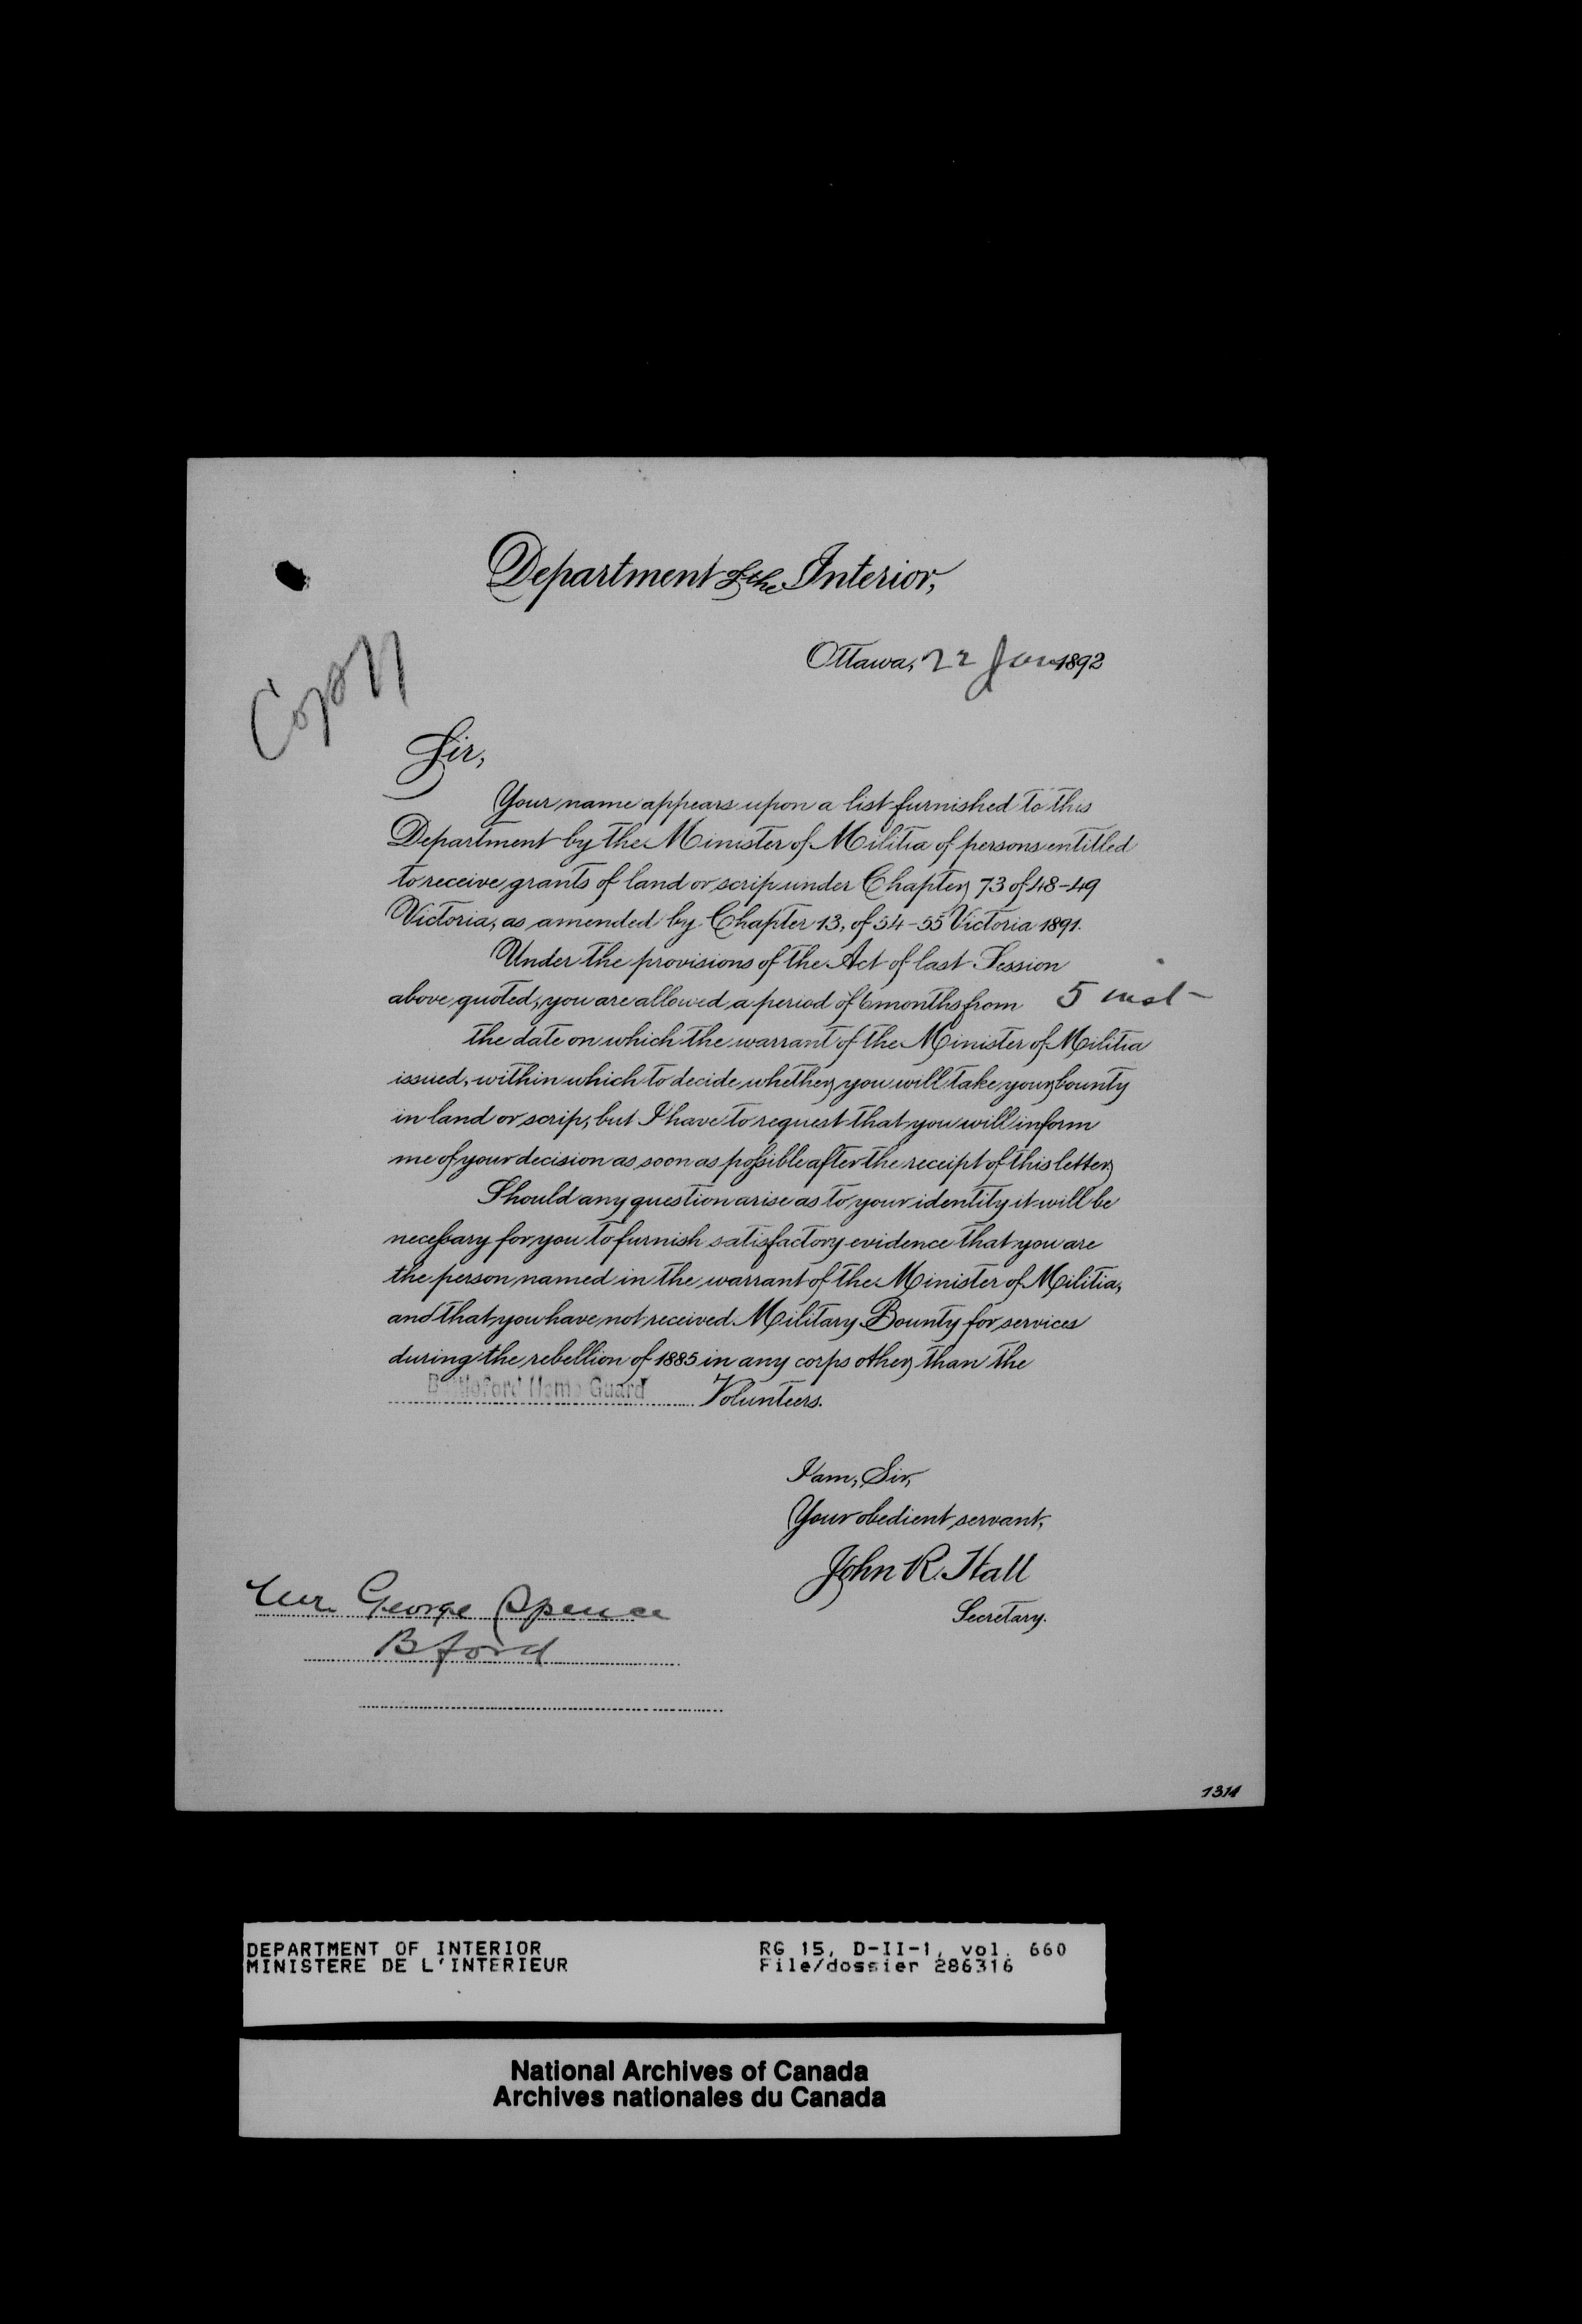 Department of the Interior,
Ottawa, 22 Jan 1892
Copy
Sir,
Your name appears upon a list furnished to this
Department by the Minister of Militia of persons entitled
to receive grants of land or scrip under Chapter 73 of 48-49
Victoria, as amended by Chapter 13, of 54-55 Victoria 1891.
Under the provisions of the Act of last Session
above quoted, you are allowed a period of 6 months from 5 inst-
the date on which the warrant of the Minister of Militia
issued, within which to decide whether you will take your bounty
in land or scrip, but I have to request that you will inform
me of your decision as soon as possible after the receipt of this letter
Should any question arise as to your identity it will be
necessary for you to furnish satisfactory evidence that you are
the person named in the warrant of the Minister of Militia,
and that you have not received Military Bounty for services
during the rebellion of 1885 in any corps other than the
Battleford Home Guard Volunteers.
I am, Sir,
Your obedient servant,
John R. Hall
Secretary.
Mr. George Spence
Bford
1311
DEPARTMENT OF INTERIOR RG 15, D-II-1, vol. 660
MINISTERE DE L'INTERIEUR File/dossier 286316
National Archives of Canada
Archives nationales du Canada